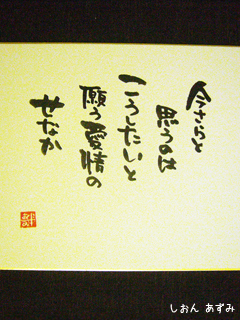 今さらと
思うのは
こうしたいと
願う愛情の
せなか
しおん あずみ